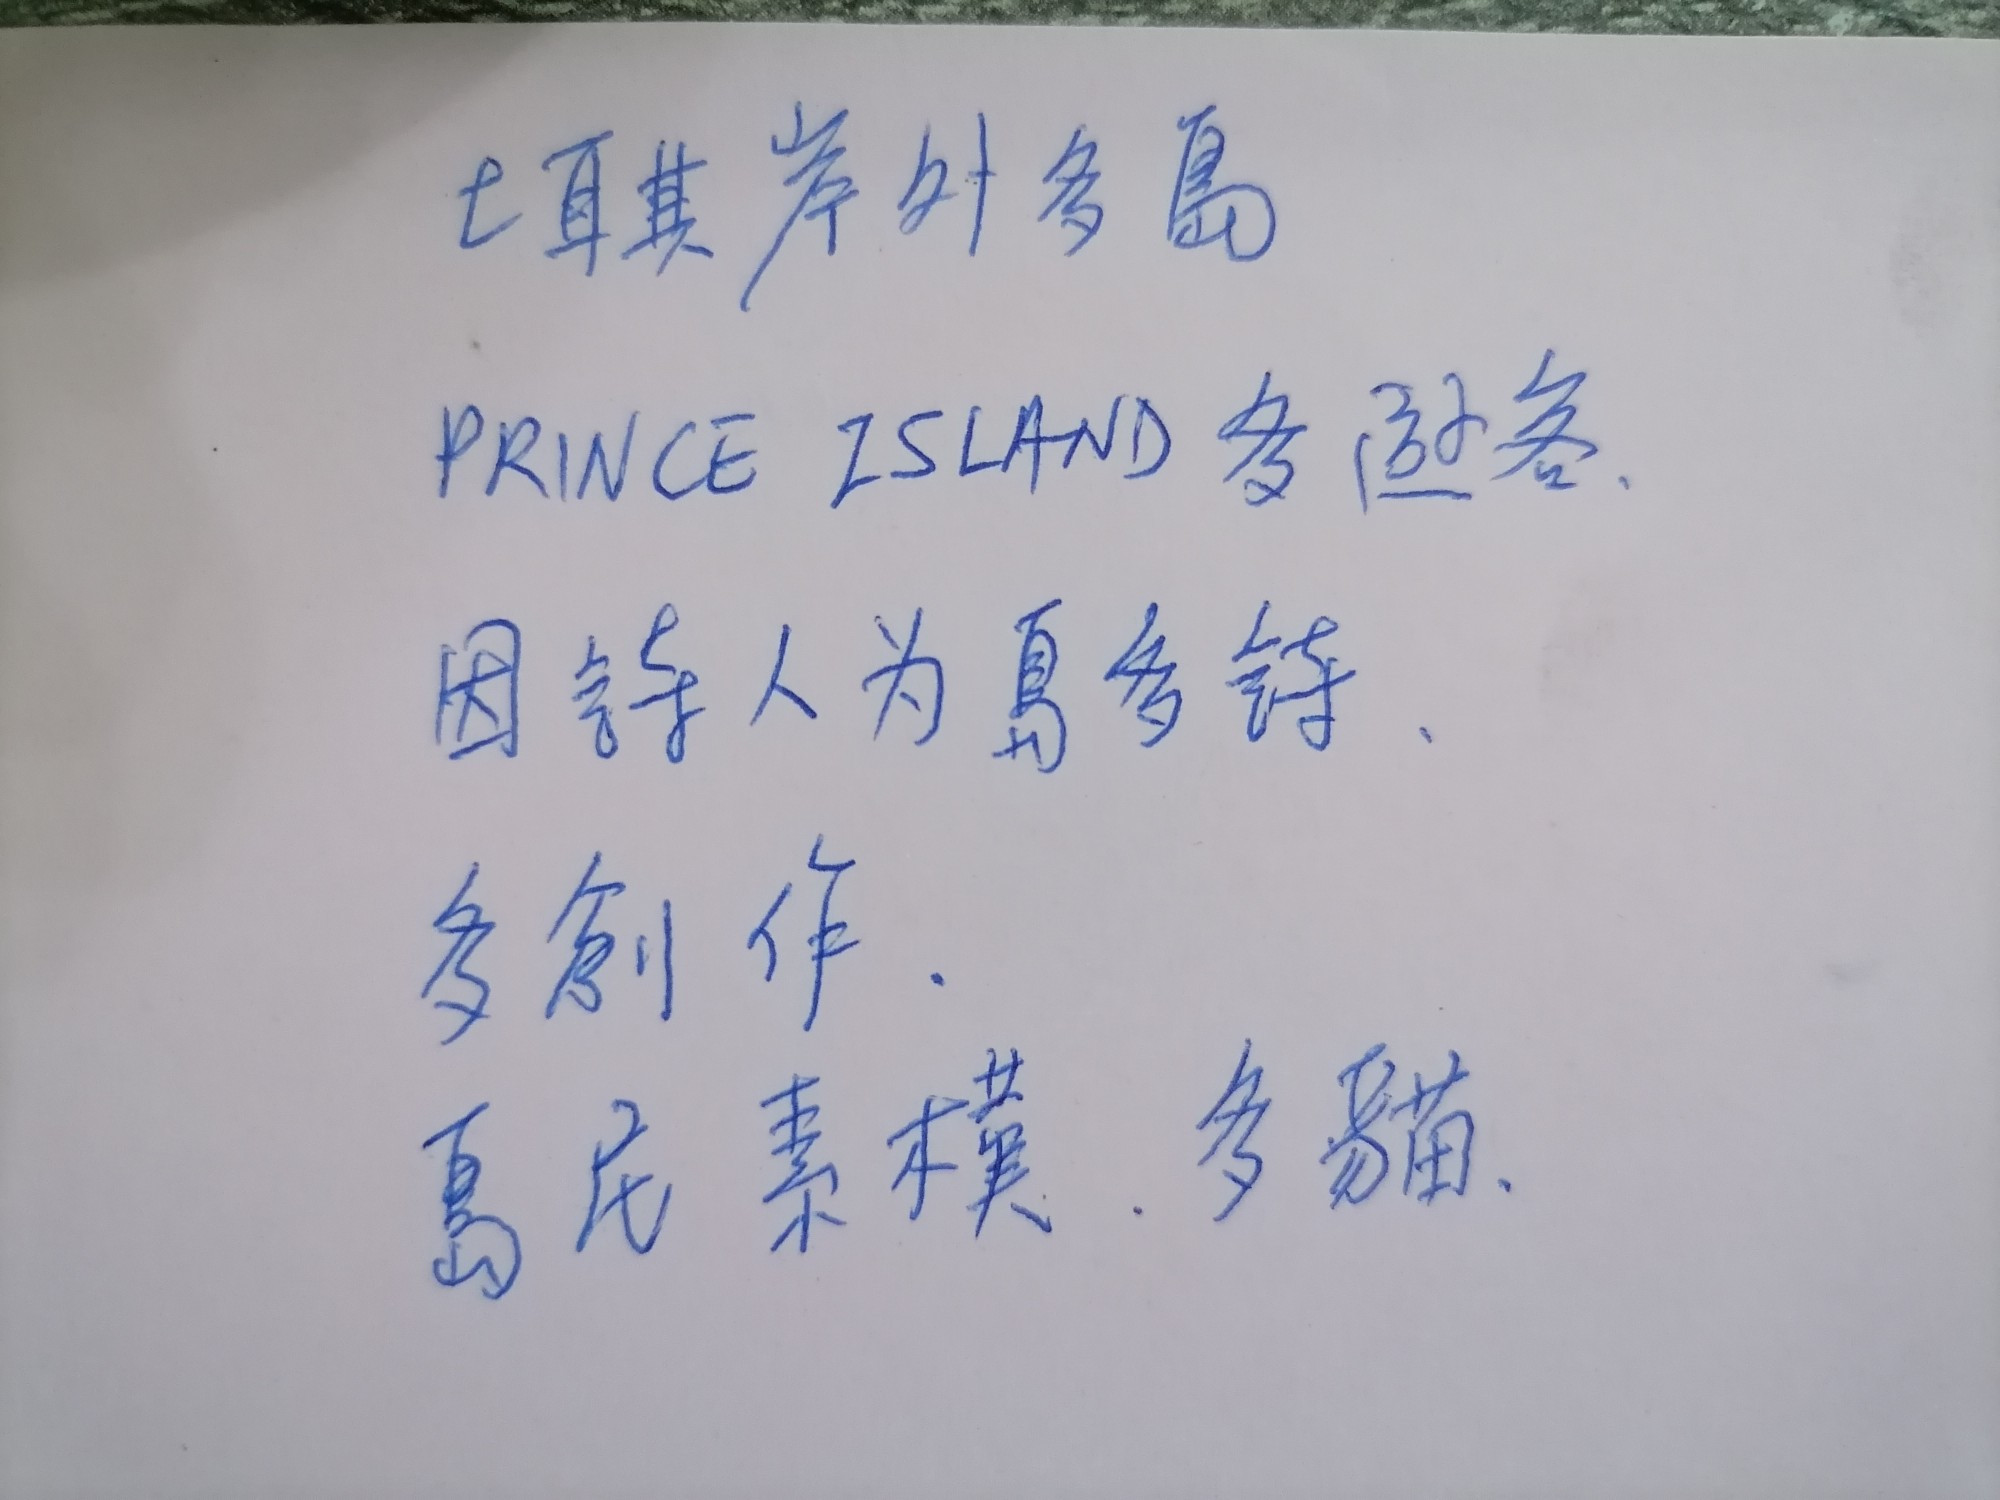 土耳其岸外多島
PRINCE ISLAND 多遊客.
因詩人为島多詩.
多創作.
島民素樸.多貓.